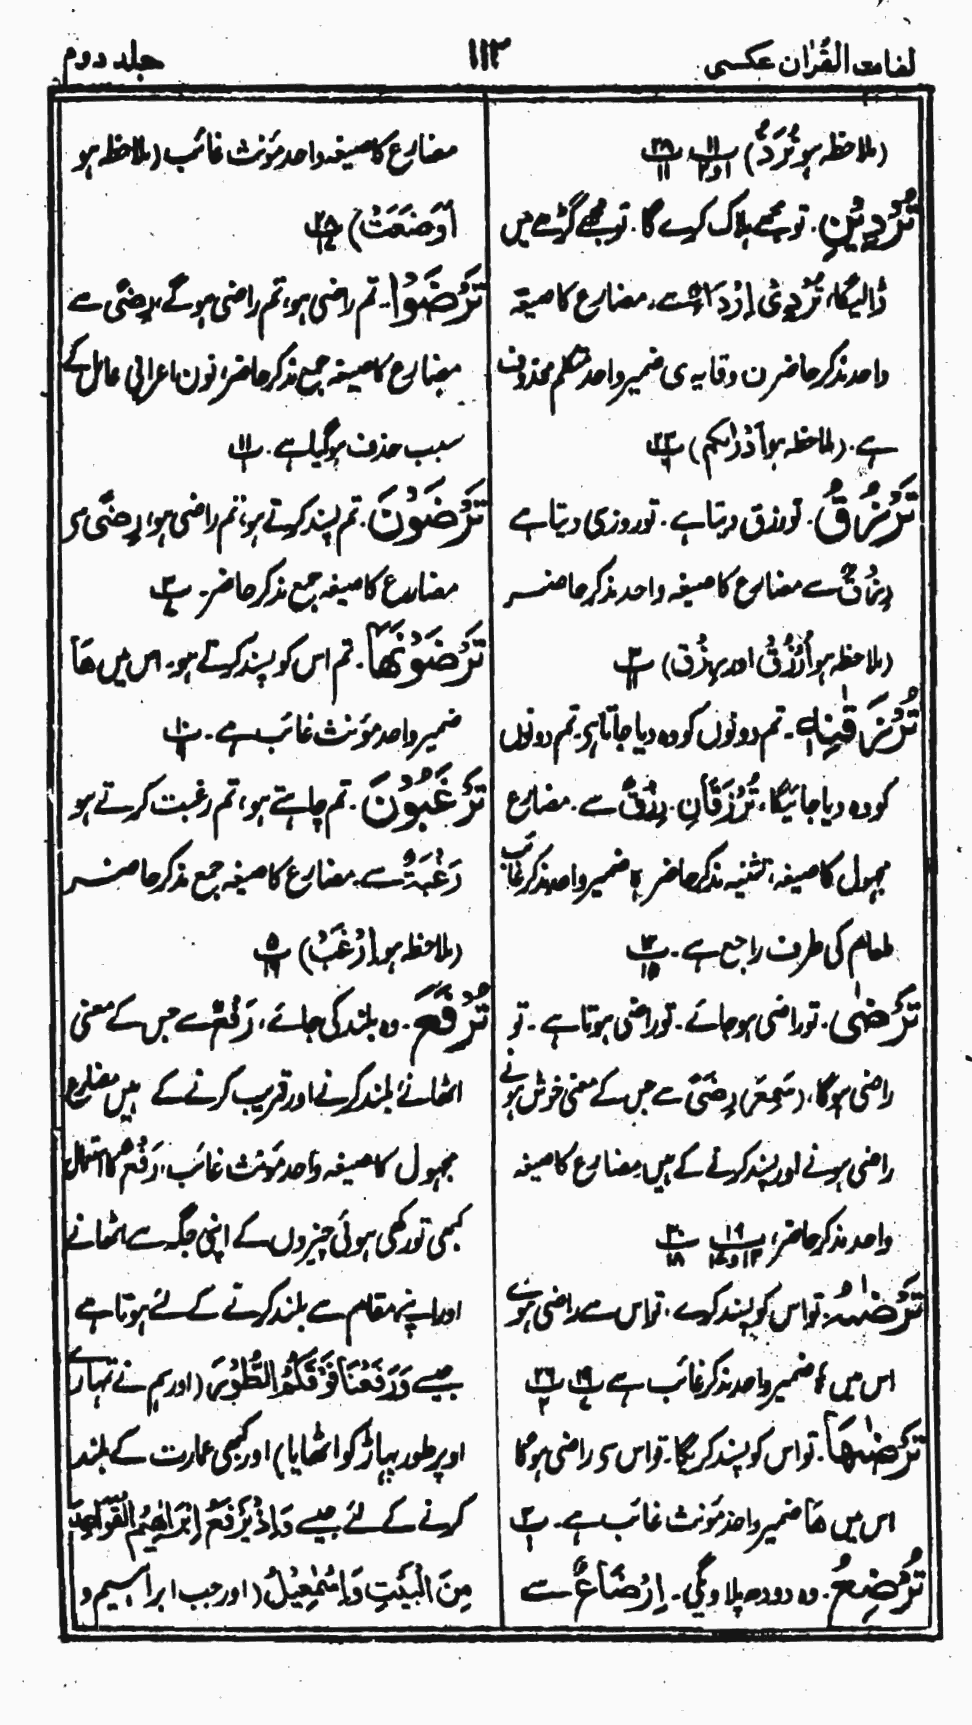 لغات القرآن عکسی
۱۱۳
جلد دوم
(ملاحظہ ہو تُرَدُّ)
تُرْدِیْنِ۔ تو مجھے ہلاک کرے گا۔ تو مجھے گڑھے میں
ڈالیگا، تُرْدِیْ اِرْدَاءٌ سے، مضارع کا صیغہ
واحد مذکر حاضر ن وقایہ ی ضمیر واحد متکلم محذوف
ہے۔ (ملاحظہ ہو اَدْرٰىکم) ۲۳
تَرْزُقُ۔ تو رزق دیتا ہے۔ تو روزی دیتا ہے
رِزْقٌ سے مضارع کا صیغہ واحد مذکر حاضر
(ملاحظہ ہو اُرْزُقْ اور یرزق) ۳/۱۱
تُرْزَقٰنِهٖ۔ تم دونوں کو وہ دیا جاتا ہی۔ تم دونوں
کو وہ دیا جائیگا، تُرْزَقَانِ۔ رِزْقٌ سے۔ مضارع
مجہول کا صیغہ، تثنیہ مذکر حاضر ہٖ ضمیر واحد مذکر غائب
طعام کی طرف راجع ہے۔ ۱۲/۱۵
تَرْضٰی۔ تو راضی ہو جائے۔ تو راضی ہوتا ہے۔ تو
راضی ہوگا، (سَمِعَ) رِضًی سے جس کے معنی خوش ہونے
راضی ہونے اور پسند کرنے کے ہیں مضارع کا صیغہ
واحد مذکر حاضر، ۱۹/۱۲و۱۷ ۳۰/۱۸
تَرْضٰىهُ۔ تو اس کو پسند کرے، تو اس سے راضی ہوئے
اس میں ہٗ ضمیر واحد مذکر غائب ہے ۱۹ ۲۶/۲
تَرْضٰىهَا۔ تو اس کو پسند کریگا۔ تو اس سی راضی ہوگا
اس میں ھَا ضمیر واحد مؤنث غائب ہے۔ ۲/۱
تُرْضِعُ۔ وہ دودھ پلاویگی۔ اِرْضَاعٌ سے
مضارع کا صیغہ واحد مؤنث غائب (ملاحظہ ہو
اَوْضَعَتْ)
تَرْضَوْا۔ تم راضی ہو، تم راضی ہوگے، رِضًی سے
مضارع کا صیغہ جمع مذکر حاضر، نون اعرابی عامل کے
سبب حذف ہوگیا ہے۔ ۱۱
تَرْضَوْنَ۔ تم پسند کرتے ہو، تم راضی ہو، رِضًی سی
مضارع کا صیغہ جمع مذکر حاضر۔ ۳
تَرْضَوْنَهَا۔ تم اس کو پسند کرتے ہو۔ اس میں ھَا
ضمیر واحد مؤنث غائب ہے۔ ۱۰
تَرْغَبُوْنَ۔ تم چاہتے ہو، تم رغبت کرتے ہو
رَغْبَةٌ سے۔ مضارع کا صیغہ جمع مذکر حاضر
(ملاحظہ ہو اِرْغَبْ) ۵/۱۶
تُرْفَعَ۔ وہ بلند کی جائے، رَفْعٌ سے جس کے معنی
اٹھانے، بلند کرنے اور قریب کرنے کے ہیں مضارع
مجہول کا صیغہ واحد مؤنث غائب، رَفْعٌ کا استعمال
کبھی تو رکھی ہوئی چیزوں کے اپنی جگہ سے اٹھانے
اور اپنے مقام سے بلند کرنے کے لئے ہوتا ہے
جیسے وَرَفَعْنَا فَوْقَكُمُ الطُّوْرَ (اور ہم نے تمہارے
اوپر طور پہاڑ کو اٹھایا) اور کبھی عمارت کے بلند
کرنے کے لئے جیسے وَاِذْ یَرْفَعُ اِبْرَاهِیْمُ الْقَوَاعِدَ
مِنَ الْبَیْتِ وَاِسْمٰعِیْلُ (اور جب ابراہیم و